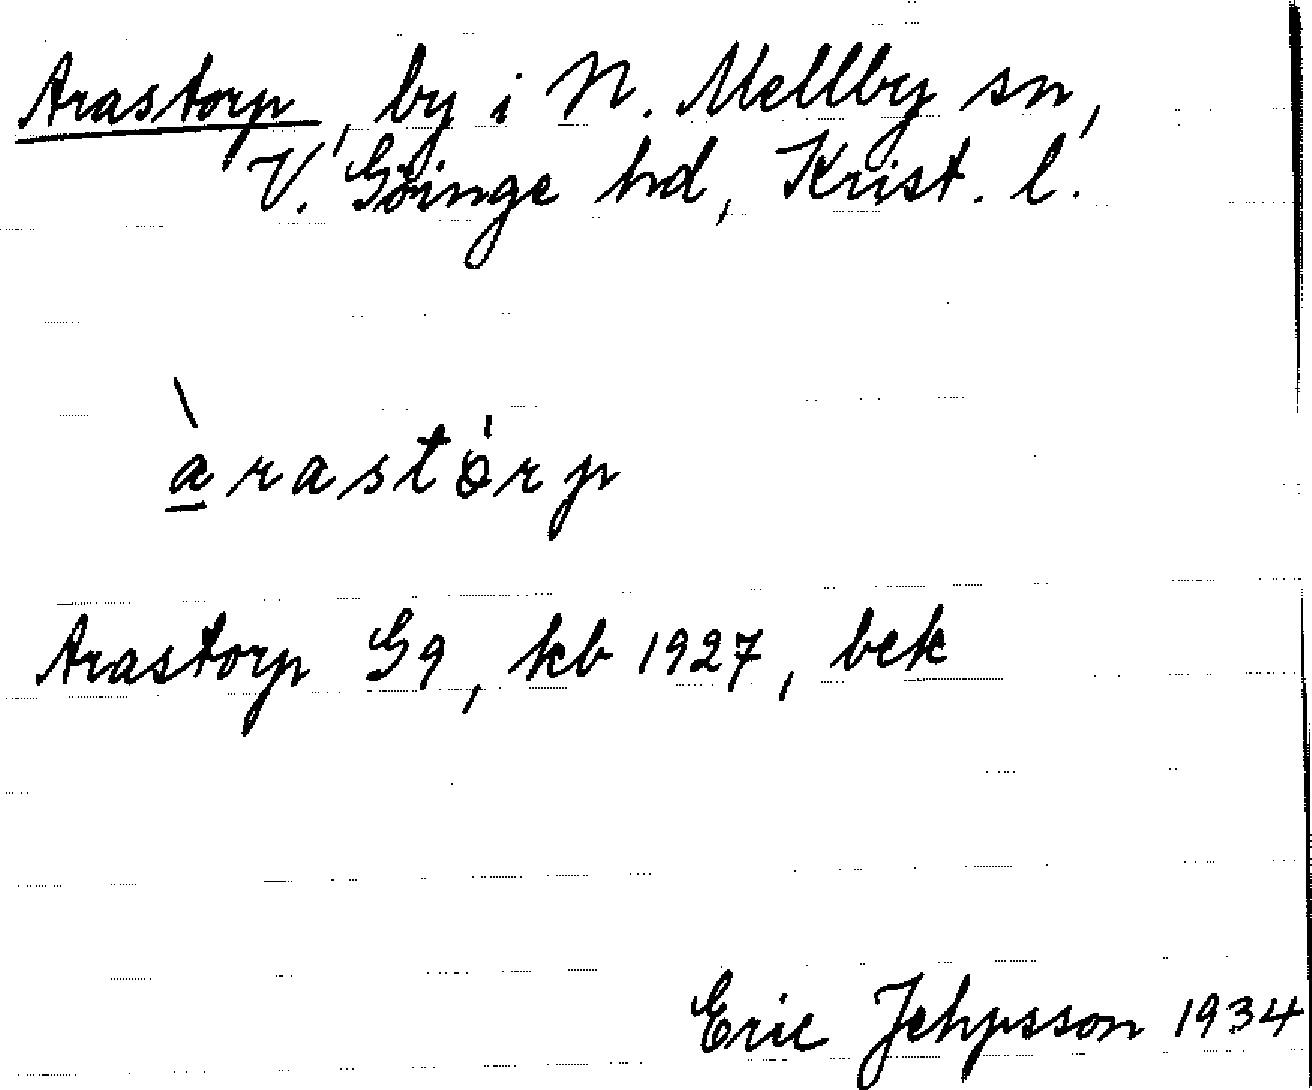 Arastorp, by i N. Mellby sn,
V. Göinge hd, Krist. l.
àrastórp
Arastorp G9, kb 1927, bek
Eric Jehpsson 1934